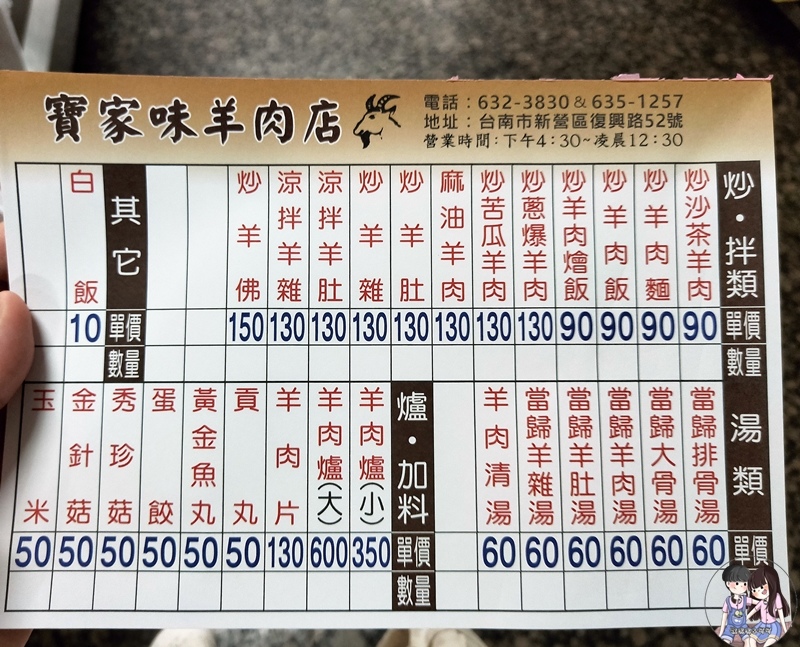 寶家味羊肉店
電話：632-3830&635-1257
地址：台南市新營區復興路52號
營業時間：下午4：30~凌晨12：30
炒・拌類 單價 數量
炒沙茶羊肉 90
炒羊肉麵 90
炒羊肉飯 90
炒羊肉燴飯 90
炒蔥爆羊肉 130
炒苦瓜羊肉 130
麻油羊肉 130
炒羊肚 130
炒羊雜 130
涼拌羊肚 130
涼拌羊雜 130
炒羊佛 150
其它 單價 數量
白飯 10
湯類 單價
當歸排骨湯 60
當歸大骨湯 60
當歸羊肉湯 60
當歸羊肚湯 60
當歸羊雜湯 60
羊肉清湯 60
爐・加料 單價 數量
羊肉爐(小) 350
羊肉爐(大) 600
羊肉片 130
貢丸 50
黃金魚丸 50
蛋餃 50
秀珍菇 50
金針菇 50
玉米 50